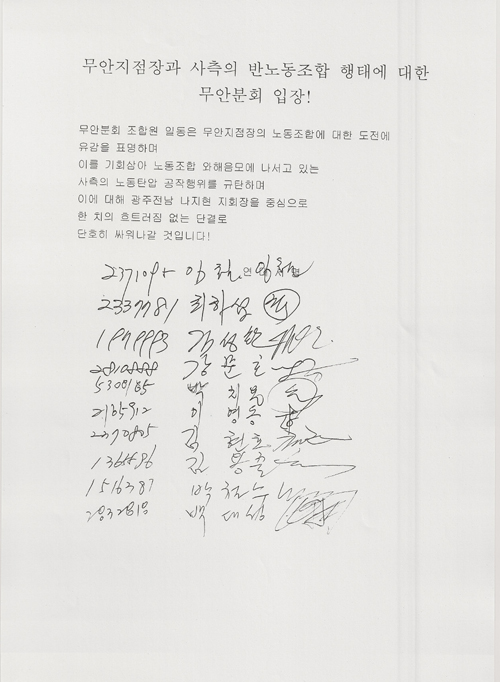 무안지점장과 사측의 반노동조합 행태에 대한
무안분회 입장!
무안분회 조합원 일동은 무안지점장의 노동조합에 대한 도전에
유감을 표명하며
이를 기회삼아 노동조합 와해음모에 나서고 있는
사측의 노동탄압 공작행위를 규탄하며
이에 대해 광주전남 나지현 지회장을 중심으로
한 치의 흐트러짐 없는 단결로
단호히 싸워나갈 것입니다!
2337781 최하성
김성환
강문호
박치복
2135912 이영동
2370805 김현호
김봉출
1516387 박
백대성